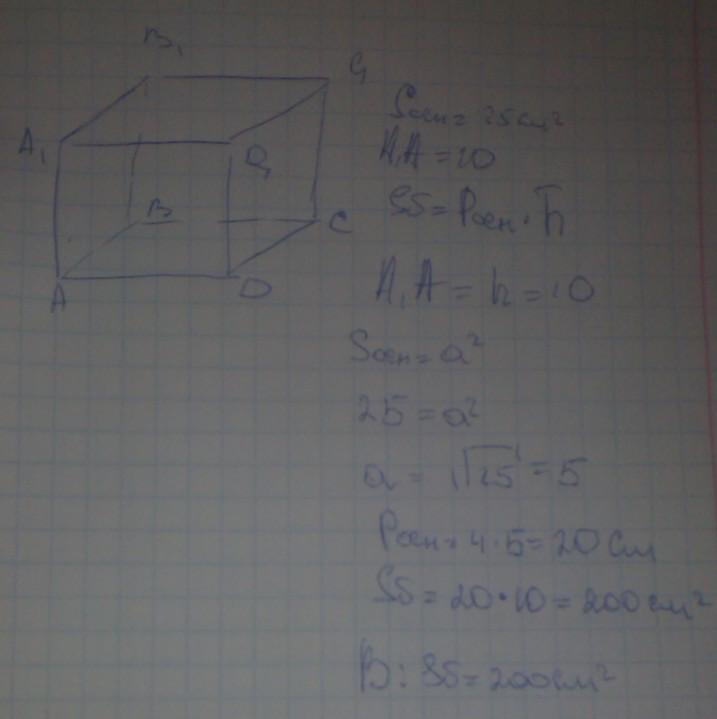 B₁
C₁
A₁
D₁
B
C
A
D
Sосн = 25 см²
A₁A = 10
Sб = Pосн · h
A₁A = h = 10
Sосн = a²
25 = a²
a = √25 = 5
Pосн = 4 · 5 = 20 см
Sб = 20 · 10 = 200 см²
В: Sб = 200 см²